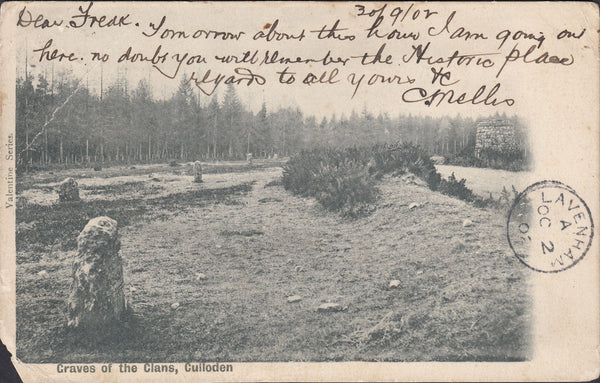 30/9/02
Dear Freak. Tomorrow about this hour I am going over
here. no doubt you will remember the Historic place
regards to all yours &c
C. Mellis
Valentine Series.
LAVENHAM
A
OC 2
02
Graves of the Clans, Culloden